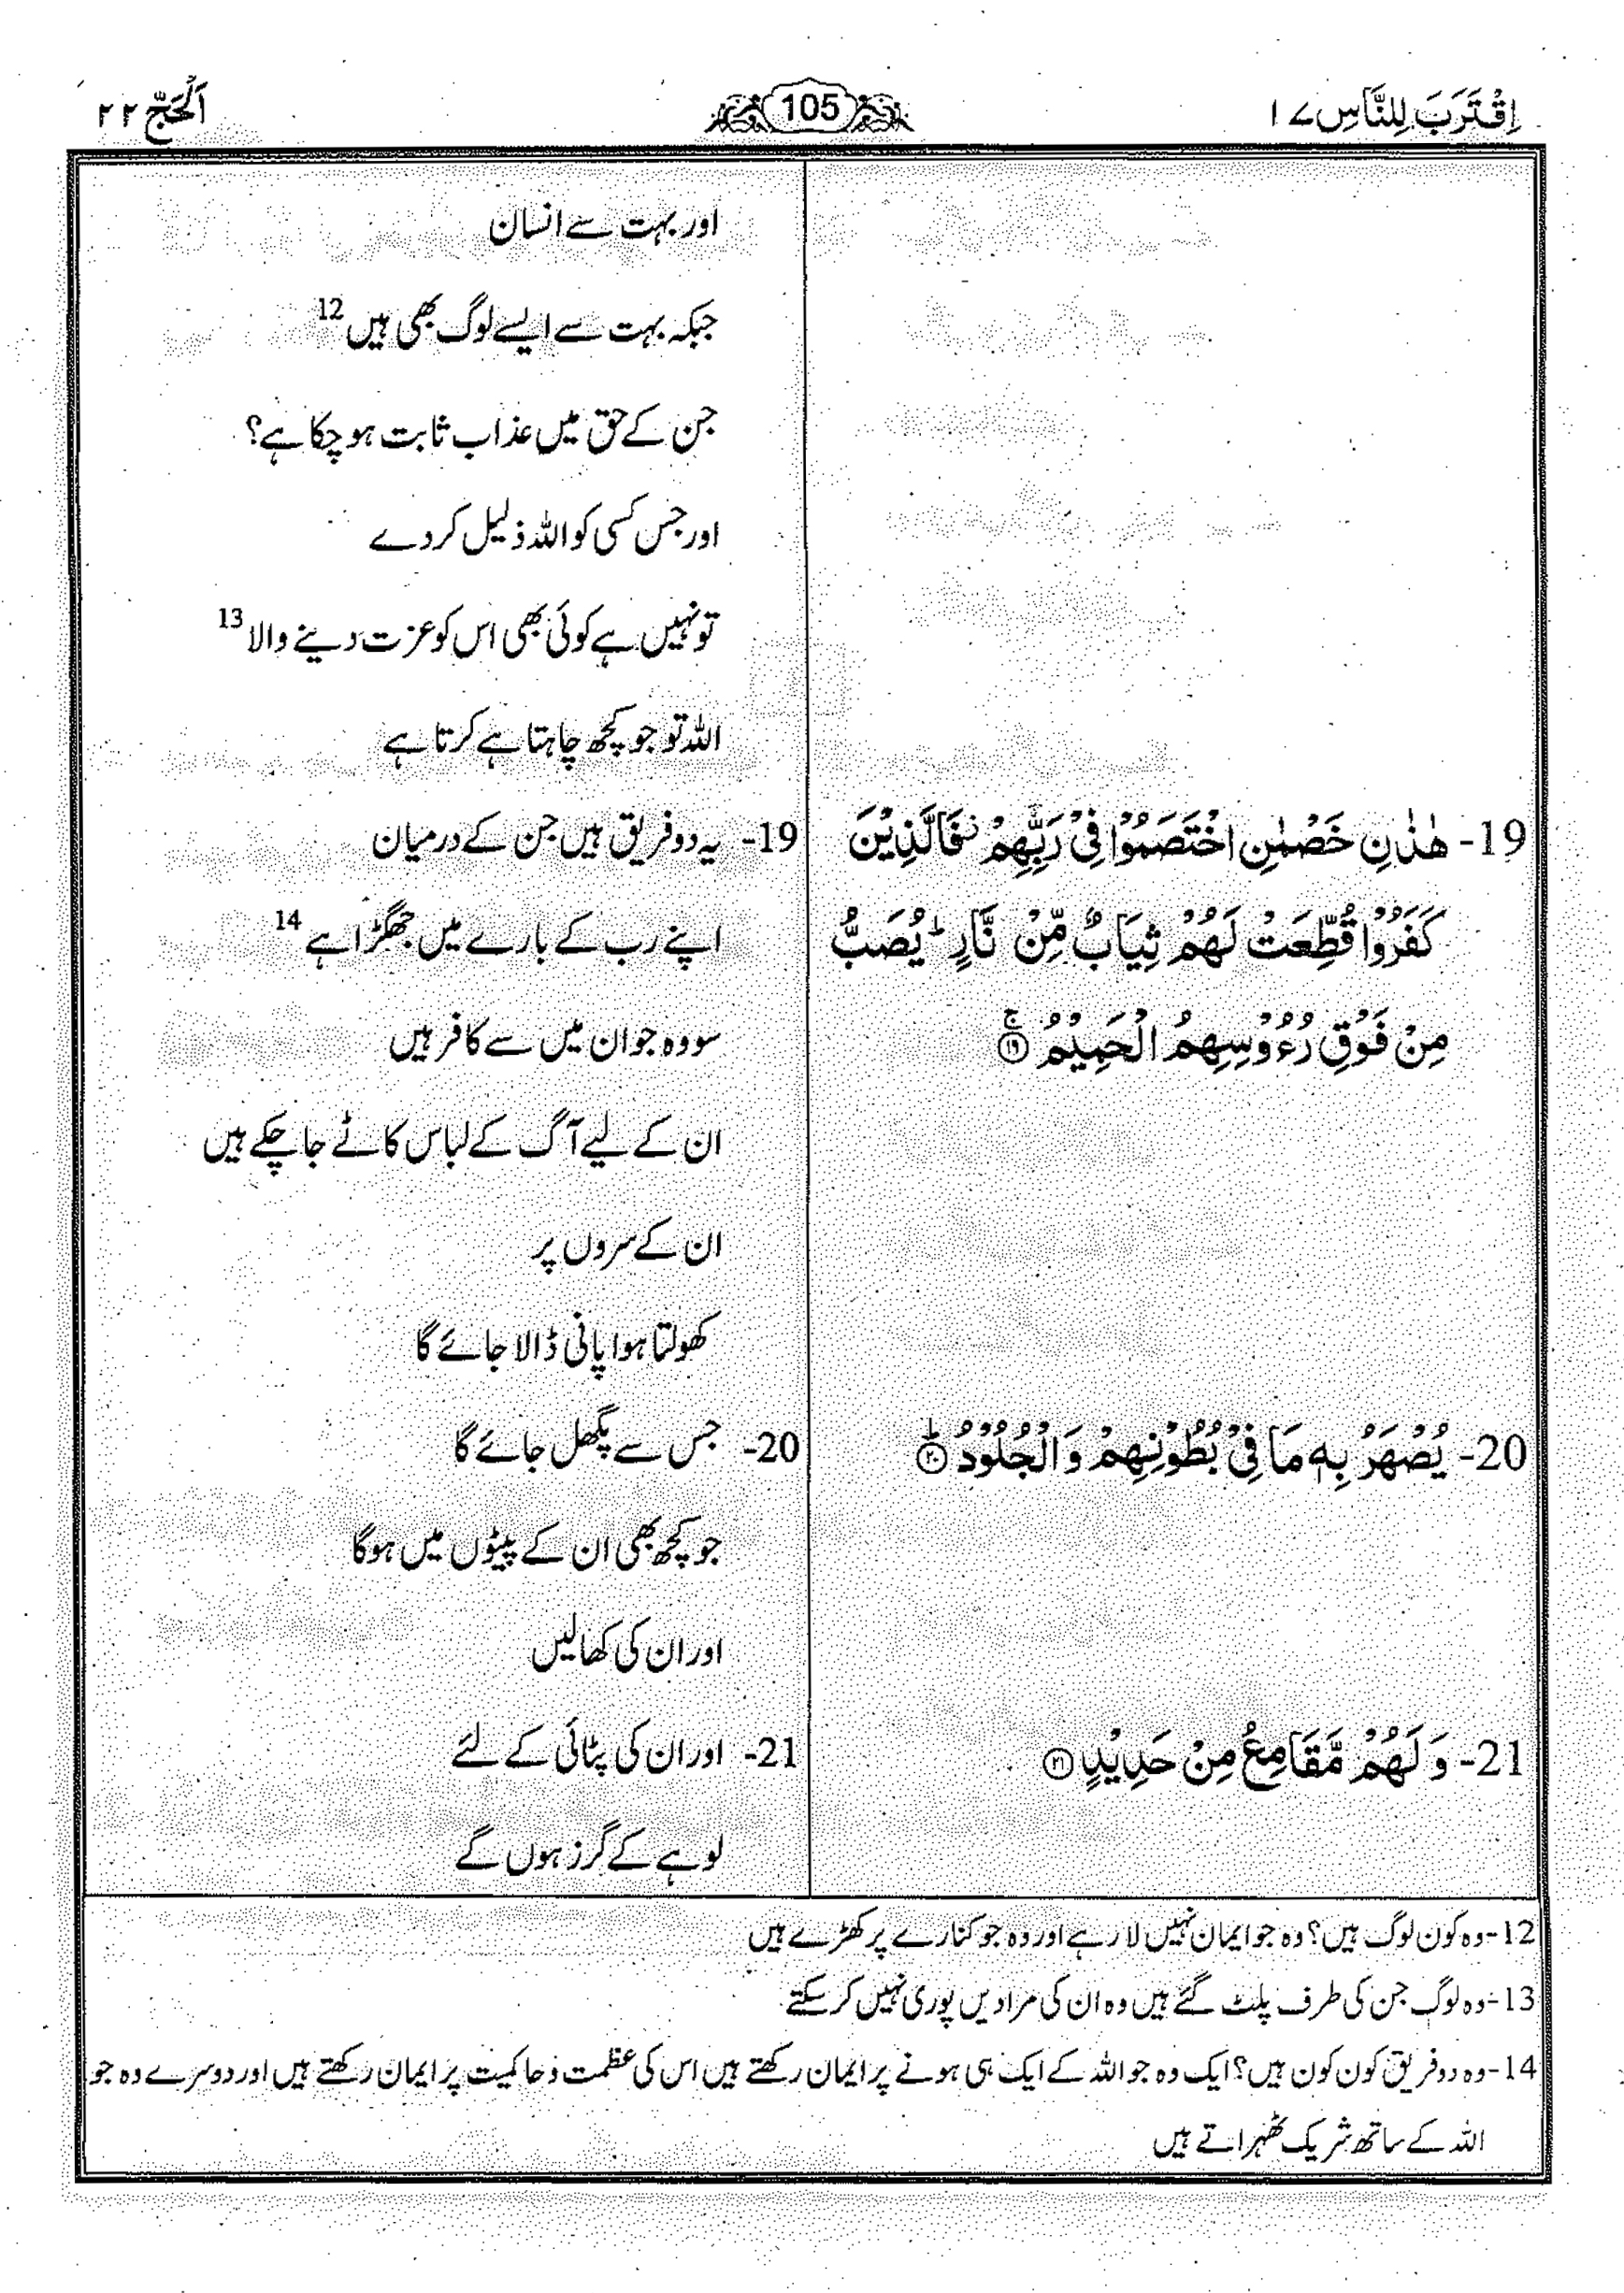 اِقْتَرَبَ لِلنَّاسِ ۱۷
105
اَلْحَجّ ۲۲
اور بہت سے انسان
جبکہ بہت سے ایسے لوگ بھی ہیں 12
جن کے حق میں عذاب ثابت ہو چکا ہے؟
اور جس کسی کو اللہ ذلیل کردے
تو نہیں ہے کوئی بھی اس کو عزت دینے والا 13
اللہ تو جو کچھ چاہتا ہے کرتا ہے
19- هٰذٰنِ خَصْمٰنِ اخْتَصَمُوْا فِیْ رَبِّهِمْ ؗ فَالَّذِیْنَ
كَفَرُوْا قُطِّعَتْ لَهُمْ ثِیَابٌ مِّنْ نَّارٍ ؕ یُصَبُّ
مِنْ فَوْقِ رُءُوْسِهِمُ الْحَمِیْمُ ۚ۝۱۹
19- یہ دو فریق ہیں جن کے درمیان
اپنے رب کے بارے میں جھگڑا ہے 14
سو وہ جو ان میں سے کافر ہیں
ان کے لیے آگ کے لباس کاٹے جاچکے ہیں
ان کے سروں پر
کھولتا ہوا پانی ڈالا جائے گا
20- یُصْهَرُ بِهٖ مَا فِیْ بُطُوْنِهِمْ وَ الْجُلُوْدُ ؕ۝۲۰
20- جس سے پگھل جائے گا
جو کچھ بھی ان کے پیٹوں میں ہوگا
اور ان کی کھالیں
21- وَ لَهُمْ مَّقَامِعُ مِنْ حَدِیْدٍ ۝۲۱
21- اور ان کی پٹائی کے لئے
لوہے کے گرز ہوں گے
12-وہ کون لوگ ہیں؟ وہ جو ایمان نہیں لا رہے اور وہ جو کنارے پر کھڑے ہیں
13-وہ لوگ جن کی طرف پلٹ گئے ہیں وہ ان کی مرادیں پوری نہیں کرسکتے
14-وہ دو فریق کون کون ہیں؟ ایک وہ جو اللہ کے ایک ہی ہونے پر ایمان رکھتے ہیں اس کی عظمت و حاکمیت پر ایمان رکھتے ہیں اور دوسرے وہ جو
اللہ کے ساتھ شریک ٹھہراتے ہیں